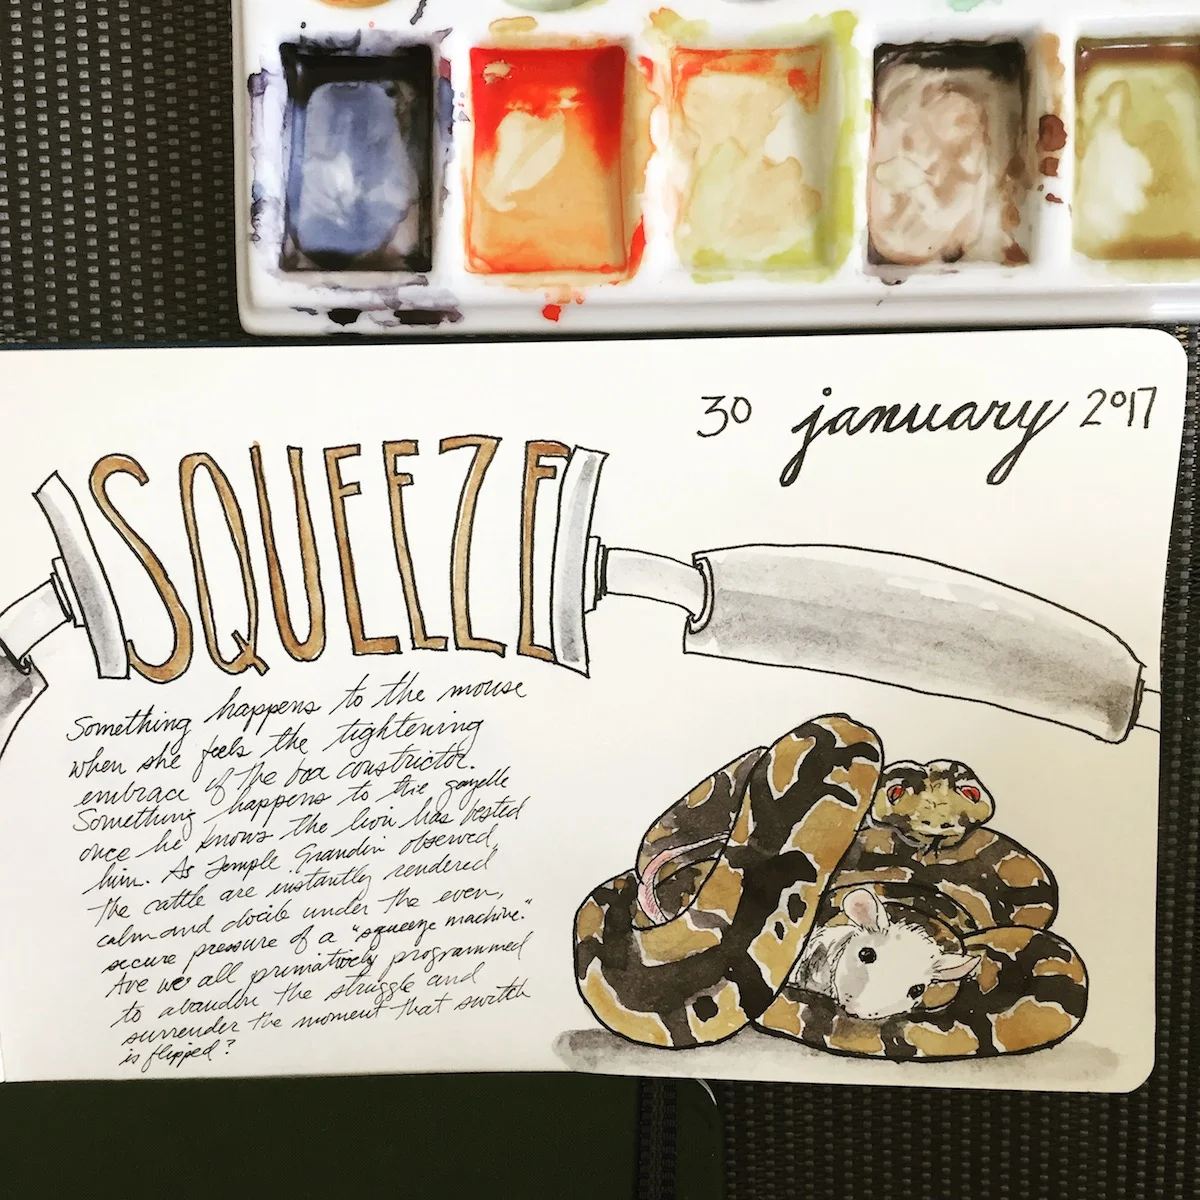 30 january 2017
SQUEEZE
Something happens to the mouse
when she feels the tightening
embrace of the boa constrictor.
Something happens to the gazelle
once he knows the lion has bested
him. As Temple Grandin observed,
the cattle are instantly rendered
calm and docile under the even,
secure pressure of a "squeeze machine."
Are we all primatively programmed
to abandon the struggle and
surrender the moment that switch
is flipped?